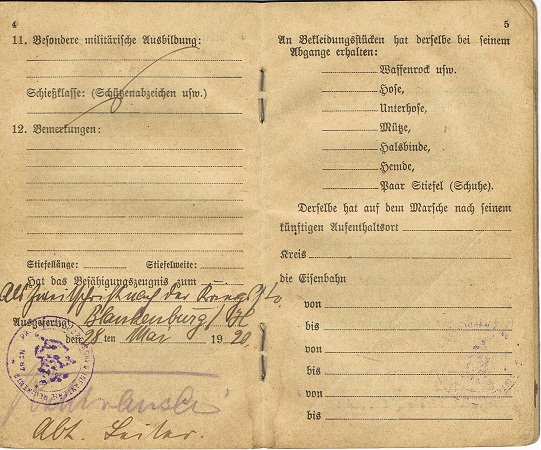 4
11. Besondere militärische Ausbildung:
Schießklasse: (Schützenabzeichen usw.)
12. Bemerkungen:
Stiefellänge: Stiefelweite:
Hat das Befähigungszeugnis zum
Als Zweitschrift nach der
Ausgefertigt Blankenburg/H
den 28 ten Mai 19 20.
Abt. Leiter.
5
An Bekleidungsstücken hat derselbe bei seinem
Abgange erhalten:
Waffenrock usw.
Hose,
Unterhose,
Mütze,
Halsbinde,
Hemde,
Paar Stiefel (Schuhe).
Derselbe hat auf dem Marsche nach seinem
künftigen Aufenthaltsort
Kreis
die Eisenbahn
von
bis
von
bis
von
bis